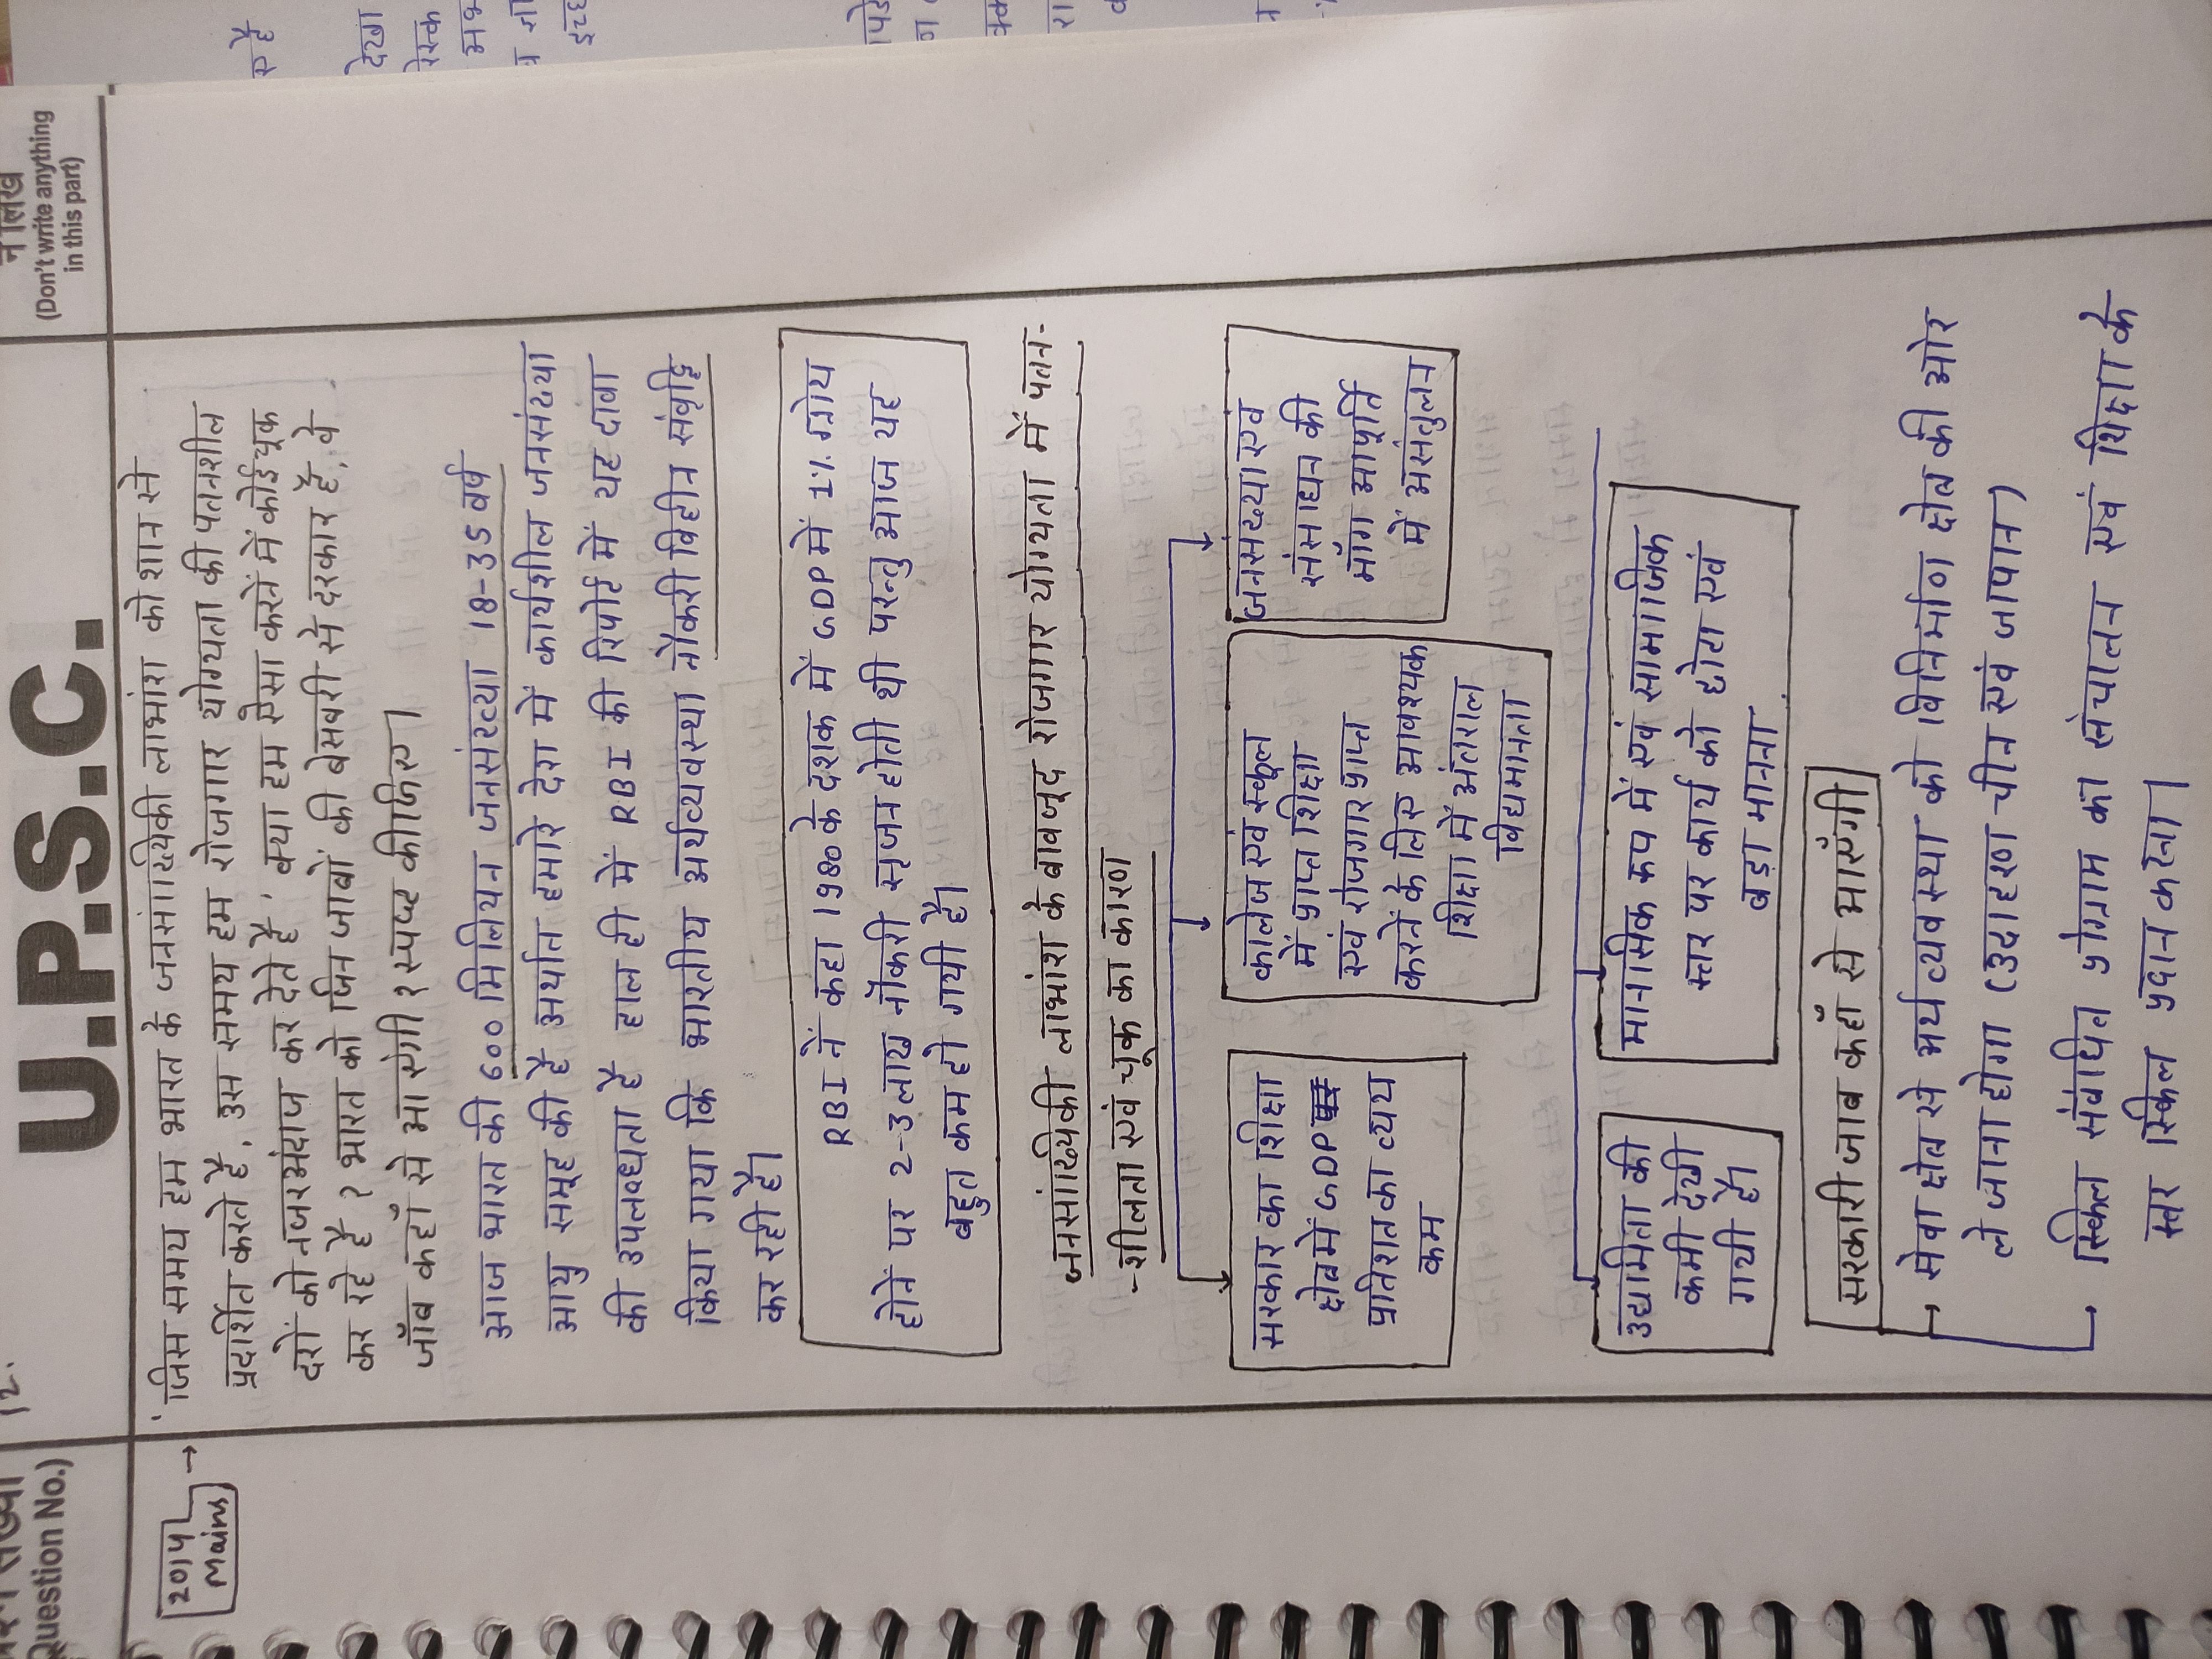 U.P.S.C.
(Question No.)
12.
(Don't write anything
in this part)
2014
Mains
'जिस समय हम भारत के जनसांख्यिकी लाभांश को शान से
प्रदर्शित करते है, उस समय हम रोजगार योग्यता की पतनशील
दरों को नजरअंदाज कर देते है', क्या हम ऐसा करने में कोई चूक
कर रहे है? भारत को जिन जाबों की बेसबरी से दरकार है, वे
जॉब कहाँ से आ एंगी? स्पष्ट कीजिए।
आज भारत की 600 मिलियन जनसंख्या 18-35 वर्ष
आयु समूह की है अर्थात हमारे देश में कार्यशील जनसंख्या
की उपलब्धता है हाल ही में RBI की रिपोर्ट में यह दावा
किया गया कि भारतीय अर्थव्यवस्था नौकरी विहीन संवृद्दि
कर रही है।
RBI नें कहा 1980 के दशक में GDP में 1% ग्रोथ
होनें पर 2-3 लाख नौकरी सृजन होती थी परन्तु आज यह
बहुत कम हो गयी है।
जनसांख्यिकी लाभांश के बावजूद रोजगार योग्यता में पतन-
-शीलता एवं चूक का कारण
सरकार का शिक्षा
क्षेत्र में GDP
प्रतिशत का व्यय
कम
कालेज एवं स्कूल
में प्राप्त शिक्षा
एवं रोजगार प्राप्त
करनें के लिए आवश्यक
शिक्षा में अंतराल
विद्यमानता
जनसख्या एवं
संसाधन की
माँग आपूर्ति
में असंतुलन
उद्यमिता की
कमी देखी
गयी है।
मानसिक रूप में एवं सामाजिक
स्तर पर कार्य को छोटा एवं
बड़ा मानना
सरकारी जाब कहाँ से आएंगी
सेवा क्षेत्र से अर्थव्यवस्था को विनिर्माण क्षेत्र की ओर
ले जाना होगा (उदाहरण चीन एवं जापान)
स्किल संबंधित प्रोग्राम का संचालन एवं शिक्षा के
स्तर स्किल प्रदान करना।